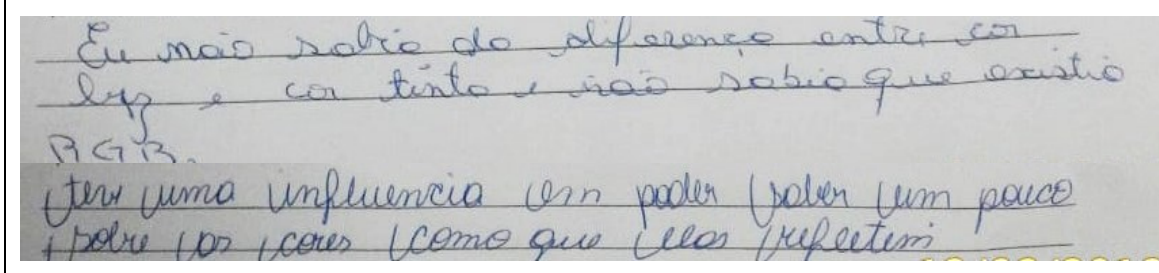 Eu não sabia da diferença entre cor
luz e cor tinta e não sabia que existia
RGB.
tem uma influencia em poder saber um pouco
sobre as cores como que elas refletem